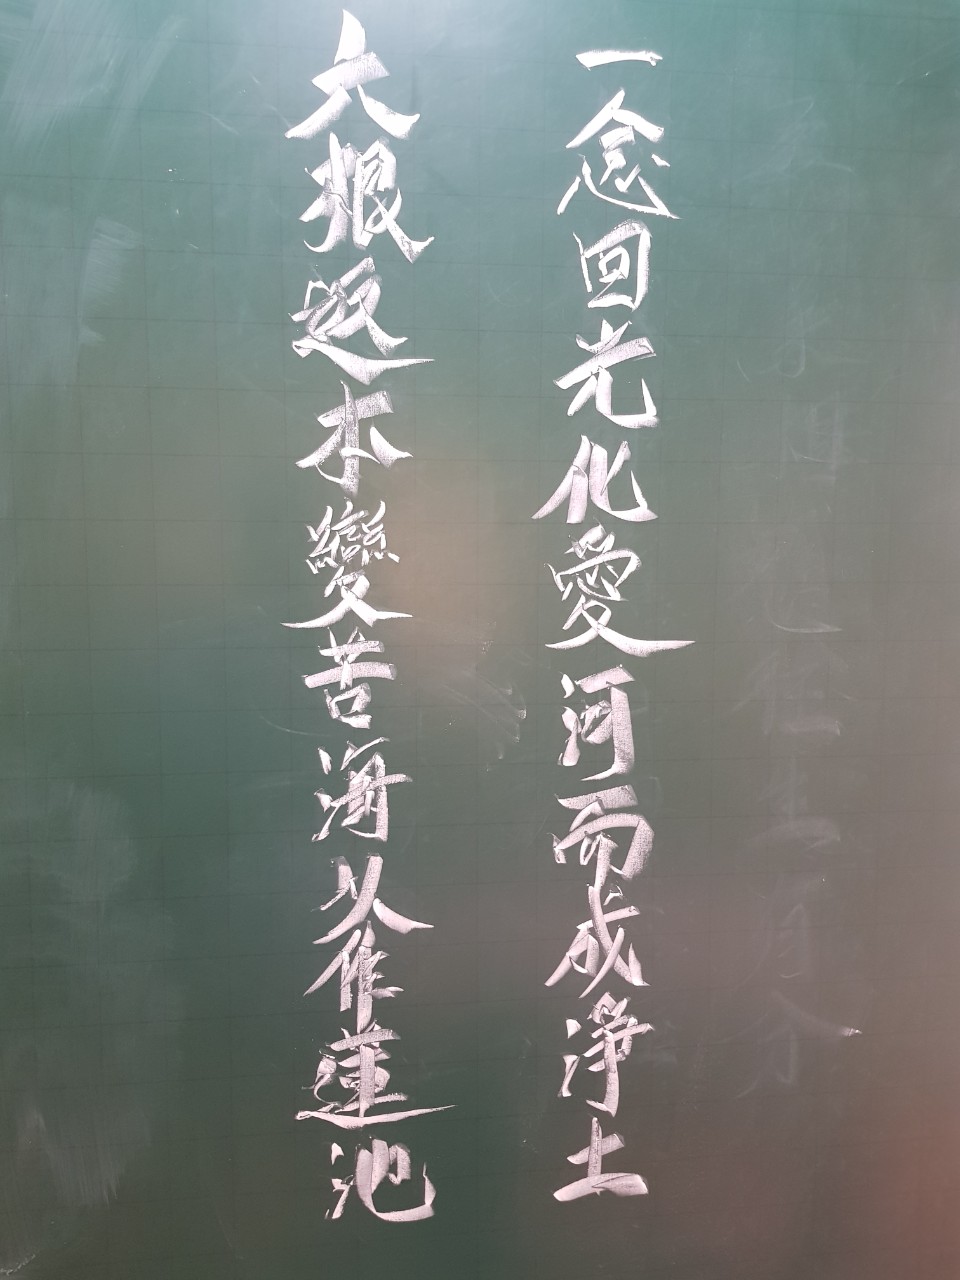 一念回光化愛河而成淨土
六根返本變苦海以作蓮池